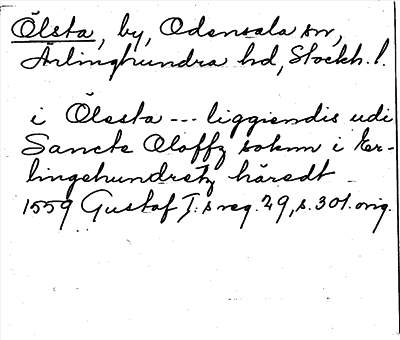 Ölsta, by, Odensala sn,
Ärlinghundra hd, Stockh. l.
i Ölesta --- liggiendis udi
Sancte Oloffz soknn i Er-
lingehundretz häredt
1559 Gustaf I:s reg. 29, s. 301. orig.